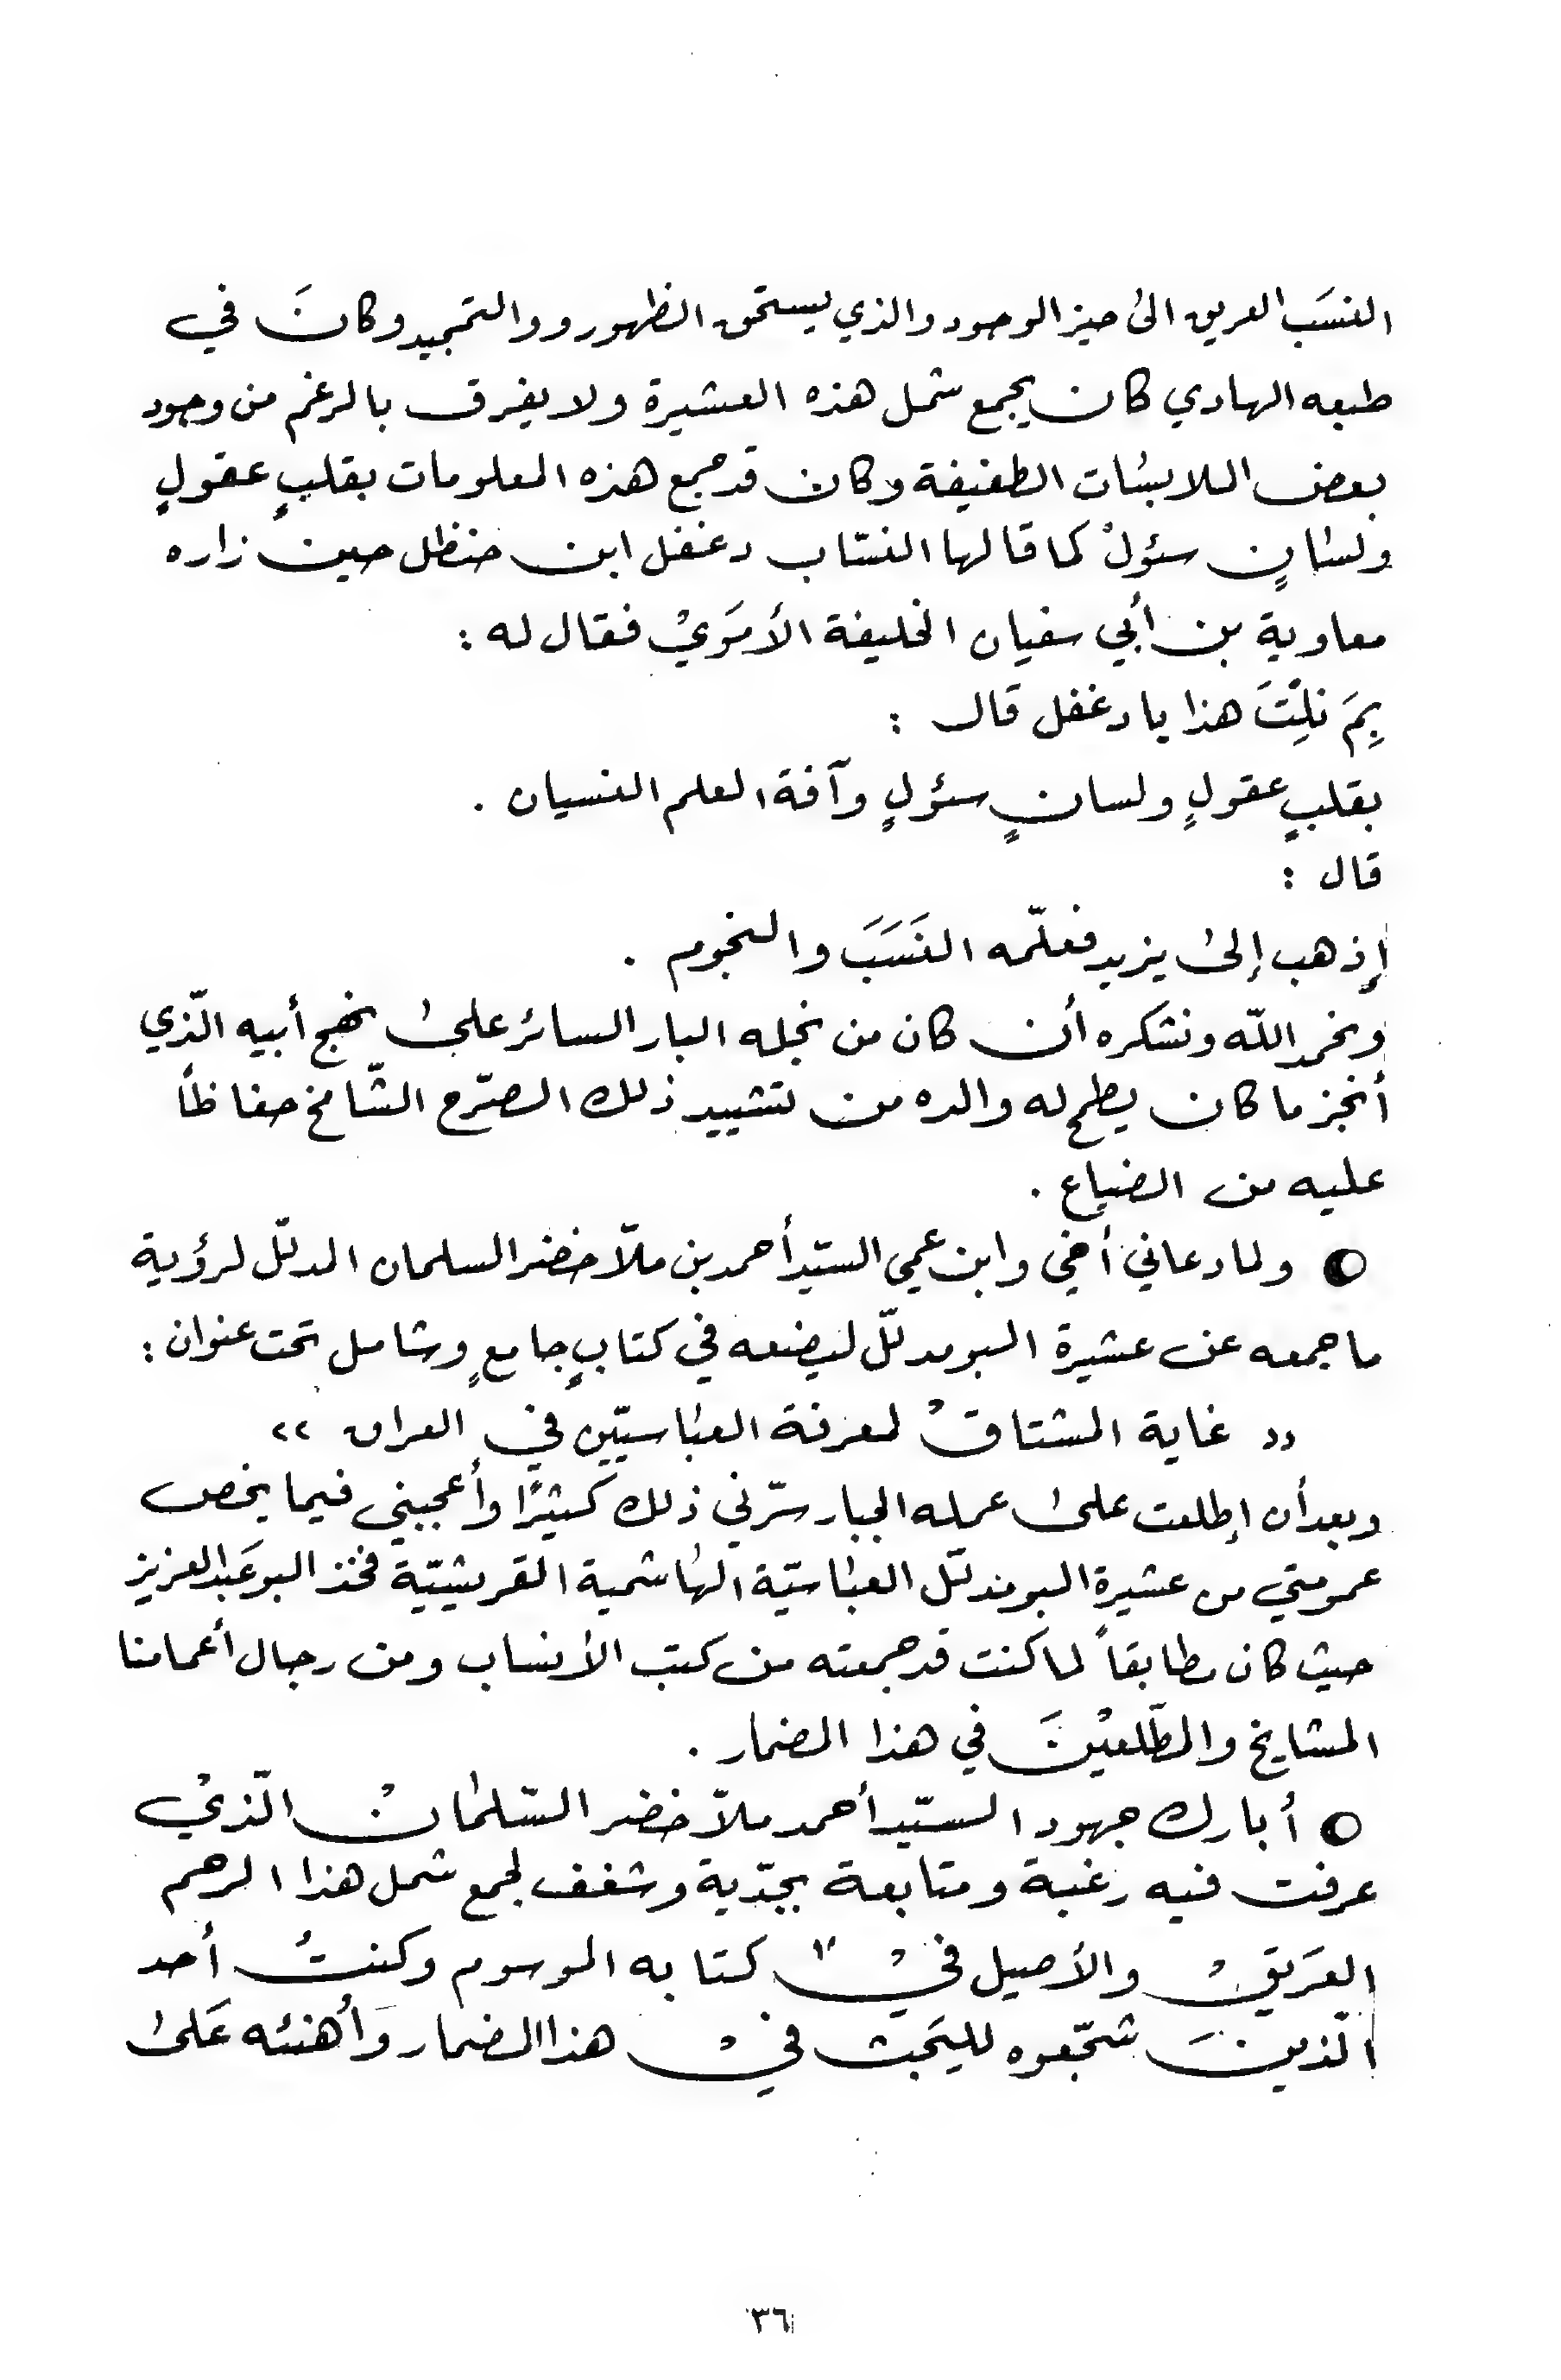 النسَب العريق الى حيز الوجود والذي يستحق الظهور ووالتمجيد وكانَ في
طبعه الهادي كان يجمع شمل هذه العشيرة ولا يفرق بالرغم من وجود
بعض الملابسات الطفيفة وكان قد جمع هذه المعلومات بقلبٍ عقولٍ
ولسانٍ سئولْ كما قالها النسّاب دغفل ابن حنظل حين زاره
معاوية بن أبي سفيان الخليفة الأمَويْ فقال له :
بِمَ نلِتَ هذا يا دغفل قال :
بقلبٍ عقولٍ ولسانٍ سئولٍ وآفة العلم النسيان .
قال :
إذهب إلى يزيد فعلّمه النَسَبَ والنجوم .
ونحمد اللّه ونشكره أن كان من نجله البار السائر على نهج أبيه الّذي
أنجز ما كان يطمح له والده من تشييد ذلك الصّرح الشّامخ حفاظاً
عليه من الضياع .
● ولما دعاني أخي وابن عمي السيّد أحمد بن ملاّ خضر السلمان المدلّل لرؤية
ما جمعه عن عشيرة البومدلّل ليضعه في كتابٍ جامعٍ وشامل تحت عنوان :
« غاية المشتاقْ لمعرفة العباسيّين في العراق »
وبعد أن إطلعت على عمله الجبار سرّني ذلك كثيرًا وأعجبني فيما يخص
عمومتي من عشيرة البومدلّل العباسيّة الهاشمية القريشيّة فخذ البوعَبدالعزيز
حيث كان مطابقاً لما كنت قد جمعته من كتب الأنساب ومن رجال أعمامنا
المشايخ والمطّلعيْنَ في هذا المضمار .
● أبارك جهود السيّد أحمد ملاّ خضر السّلمانْ الّذيْ
عرفت فيه رغبة ومتابعة بجدّية وشغف لجمع شمل هذا الرحم
العرَيقْ والأصيل فيْ كتابه الموسوم وكنتُ أحد
الّذينَ شجّعوه لليَحث فيْ هذا المضمار وَأُهنئه عَلى
٣٦